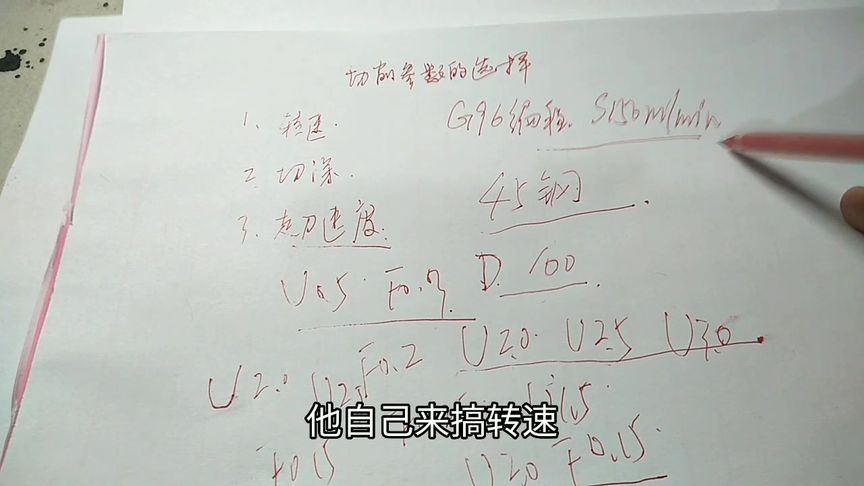 切削参数的选择
1、转速.
G96编程. S150m/min
2 切深.
45钢.
3、走刀速度.
U1.5 F0.3
D. 100.
U2.0 U2.5 U3.0
U2.0 F0.2
U1.5
F0.15
U2.0 F0.15.
他自己来搞转速